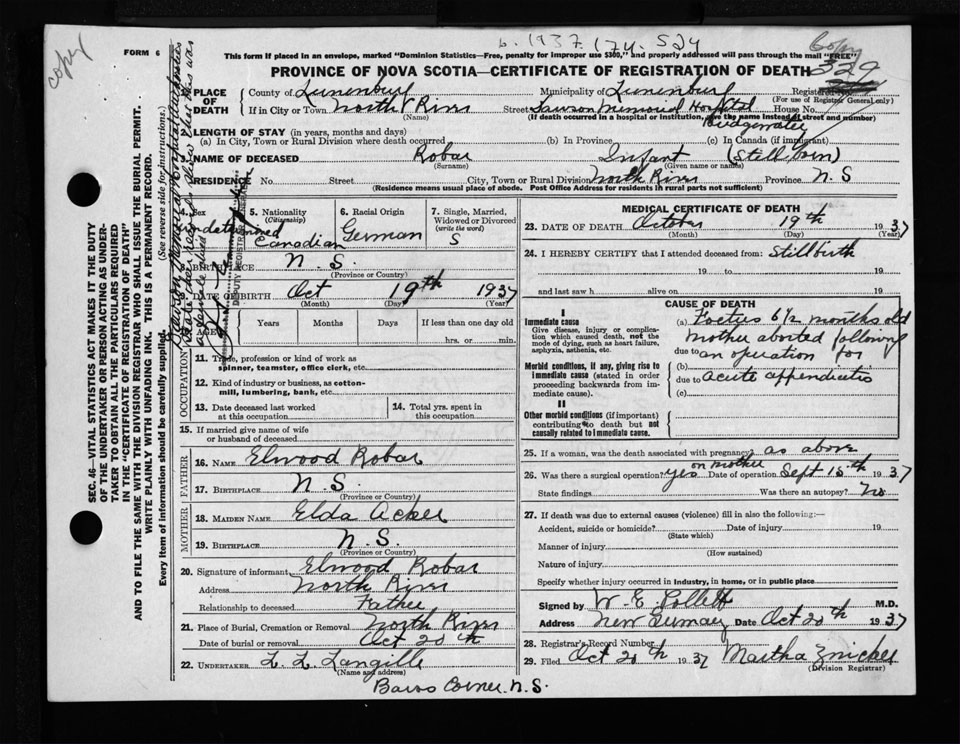 copy
b. 1937. 174. 524
Copy
FORM 6
This form if placed in an envelope, marked "Dominion Statistics—Free, penalty for improper use $300," and properly addressed will pass through the mail "FREE"
PROVINCE OF NOVA SCOTIA—CERTIFICATE OF REGISTRATION OF DEATH
329
PLACE OF DEATH
County of Lunenburg Municipality of Lunenburg Registered No.
(For use of Registrar General only)
If in City or Town North River Street Dawson Memorial Hospital House No.
(Name) (If death occurred in a hospital or institution, give the name instead of street and number)
Bridgewater
LENGTH OF STAY (in years, months and days)
(a) In City, Town or Rural Division where death occurred (b) In Province (c) In Canada (if immigrant)
NAME OF DECEASED Robar Infant (Stillborn)
(Surname) (Given name or names)
RESIDENCE No. Street City, Town or Rural Division North River Province N.S
(Residence means usual place of abode. Post Office Address for residents in rural parts not sufficient)
SEC. 46—VITAL STATISTICS ACT MAKES IT THE DUTY
OF THE UNDERTAKER OR PERSON ACTING AS UNDER-
TAKER TO OBTAIN ALL THE PARTICULARS REQUIRED
IN THE "CERTIFICATE OF REGISTRATION OF DEATH"
AND TO FILE THE SAME WITH THE DIVISION REGISTRAR WHO SHALL ISSUE THE BURIAL PERMIT.
WRITE PLAINLY WITH UNFADING INK. THIS IS A PERMANENT RECORD.
Every item of information should be carefully supplied. (See reverse side for instructions.)
DEPUTY REGISTRAR GENERAL
4. Sex undetermined
5. Nationality (Citizenship) Canadian
6. Racial Origin German
7. Single, Married, Widowed or Divorced (write the word) S
BIRTHPLACE N.S.
(Province or Country)
DATE OF BIRTH Oct 19th 1937
(Month) (Day) (Year)
AGE Years Months Days If less than one day old
hrs. or min.
OCCUPATION
11. Trade, profession or kind of work as
spinner, teamster, office clerk, etc.
12. Kind of industry or business, as cotton-
mill, lumbering, bank, etc.
13. Date deceased last worked at this occupation
14. Total yrs. spent in this occupation
15. If married give name of wife
or husband of deceased
FATHER
16. NAME Elwood Robar
17. BIRTHPLACE N.S.
(Province or Country)
MOTHER
18. MAIDEN NAME Elda Acker
19. BIRTHPLACE N.S.
(Province or Country)
20. Signature of informant Elwood Robar
Address North River
Relationship to deceased Father
21. Place of Burial, Cremation or Removal North River
Date of burial or removal Oct 20th
22. UNDERTAKER L. L. Langille
(Name and address)
Barss Corner. N.S.
MEDICAL CERTIFICATE OF DEATH
23. DATE OF DEATH October 19th 1937
(Month) (Day) (Year)
24. I HEREBY CERTIFY that I attended deceased from: Stillbirth
19 to 19
and last saw h alive on 19
CAUSE OF DEATH
I
Immediate cause
Give disease, injury or complication which caused death, not the mode of dying, such as heart failure, asphyxia, asthenia, etc.
(a) Foetus 6½ months old
Mother aborted following
due to an operation for
Morbid conditions, if any, giving rise to immediate cause (stated in order proceeding backwards from immediate cause).
(b)
due to acute appendicitis
(c)
II
Other morbid conditions (if important) contributing to death but not causally related to immediate cause.
25. If a woman, was the death associated with pregnancy? as above
26. Was there a surgical operation? yes on mother Date of operation Sept 15th 1937
State findings Was there an autopsy? No
27. If death was due to external causes (violence) fill in also the following:—
Accident, suicide or homicide? Date of injury 19
(State which)
Manner of injury
(How sustained)
Nature of injury
Specify whether injury occurred in industry, in home, or in public place
Signed by W. E. Pollett M.D.
Address New Germany Date Oct 20th 1937
28. Registrar's Record Number
29. Filed Oct 20th 1937 Martha Zwicker
(Division Registrar)